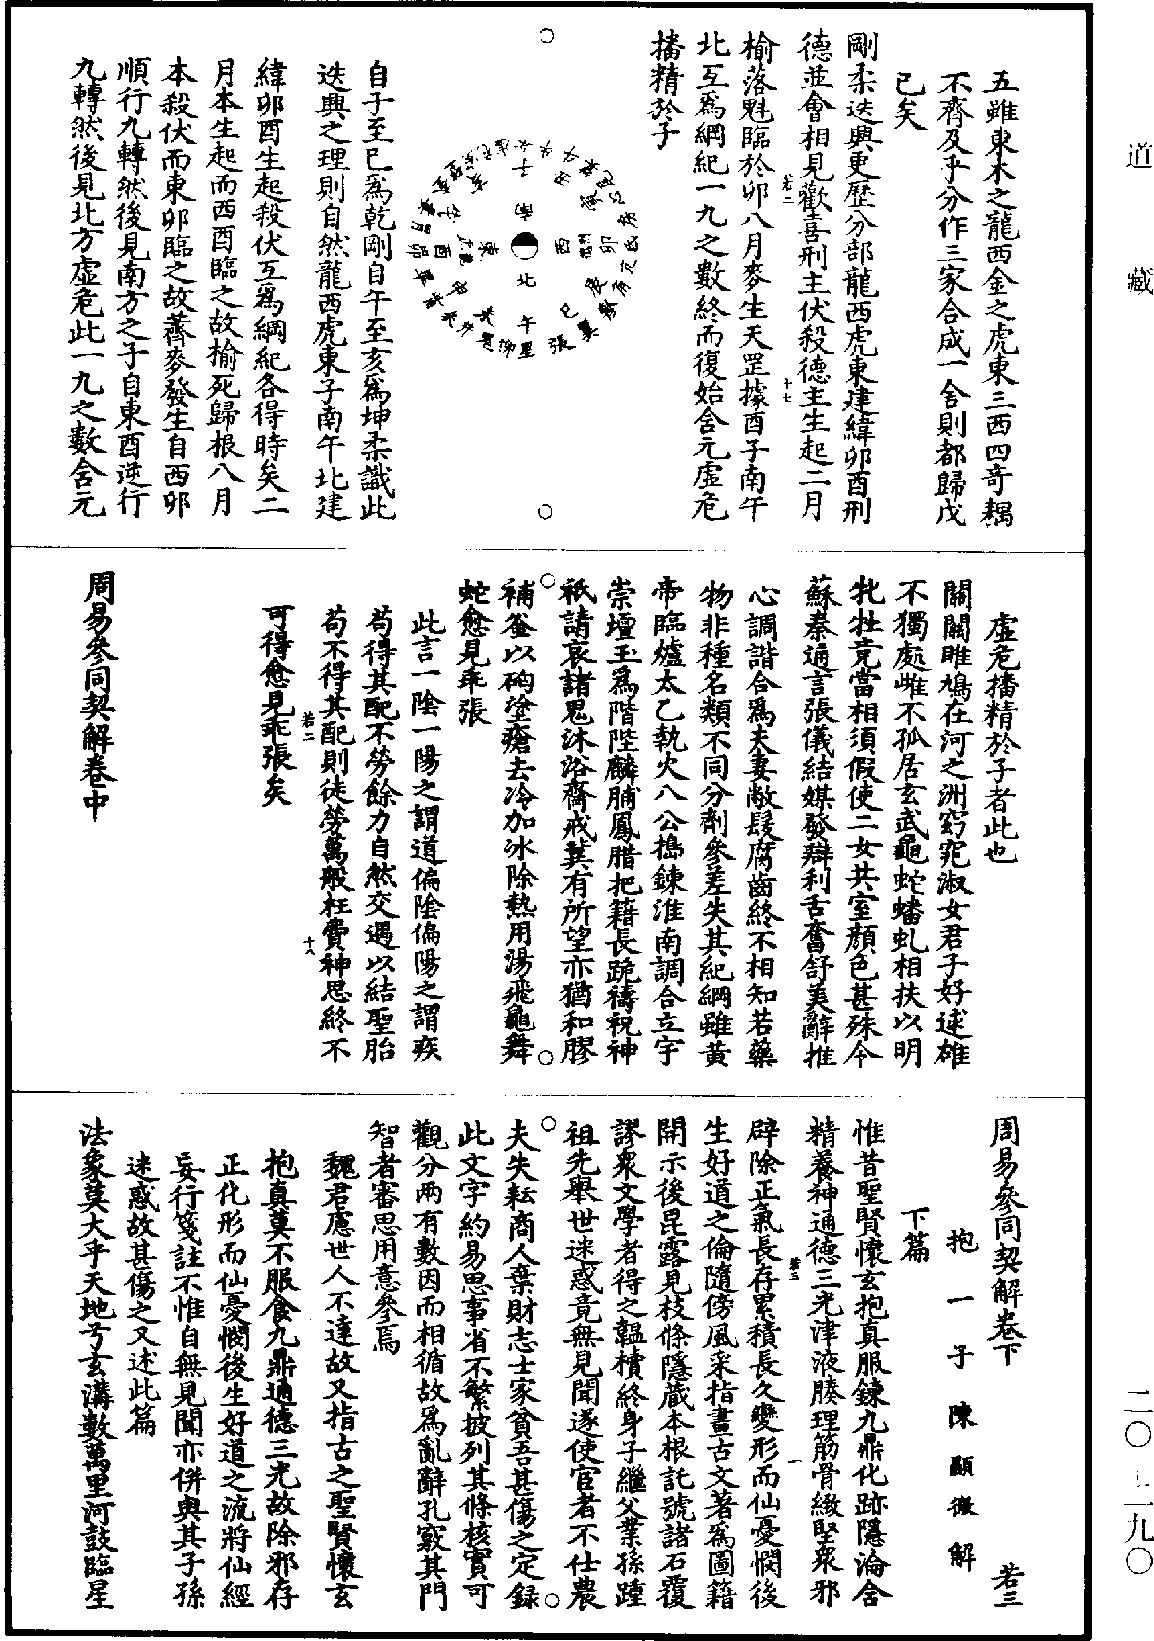 道藏
五雖東木之龍西金之虎東三西四奇耦
不齊及乎分作三家合成一舍則都歸戊
已矣
剛柔迭興更歷分部龍西虎東建緯卯酉刑
德並會相見歡喜刑主伏殺德主生起二月
榆落魁臨於卯八月麥生天罡據酉子南午
北互爲綱紀一九之數終而復始含元虛危
播精於子
自子至巳爲乾剛自午至亥爲坤柔識此
迭興之理則自然龍西虎東子南午北建
緯卯酉生起殺伏互爲綱紀各得時矣二
月本生起而西酉臨之故榆死歸根八月
本殺伏而東卯臨之故薺麥發生自西卯
順行九轉然後見南方之子自東酉逆行
九轉然後見北方虛危此一九之數含元
虛危播精於子者此也
關關雎鳩在河之洲窈窕淑女君子好逑雄
不獨處雌不孤居玄武龜蛇蟠虬相扶以明
牝牡竟當相須假使二女共室顏色甚殊令
蘇秦通言張儀結媒發辯利舌奮舒美辭推
心調諧合爲夫妻敝髮腐齒終不相知若藥
物非種名類不同分劑參差失其紀綱雖黃
帝臨爐太乙執火八公搗鍊淮南調合立宇
崇壇玉爲階陛麟脯鳳腊把籍長跪禱祝神
祇請哀諸鬼沐浴齋戒冀有所望亦猶和膠
補釜以硇塗瘡去冷加冰除熱用湯飛龜舞
蛇愈見乖張
此言一陰一陽之謂道偏陰偏陽之謂疾
苟得其配不勞餘力自然交遇以結聖胎
苟不得其配則徒勞萬般枉費神思終不
可得愈見乖張矣
周易參同契解卷中
周易參同契解卷下
若三
抱一子陳顯微解
下篇
惟昔聖賢懷玄抱真服鍊九鼎化跡隱淪含
精養神通德三光津液腠理筋骨緻堅衆邪
辟除正氣長存累積長久變形而仙憂憫後
生好道之倫隨傍風采指畫古文著爲圖籍
開示後昆露見枝條隱藏本根託號諸石覆
謬衆文學者得之韞櫝終身子繼父業孫踵
祖先舉世迷惑竟無見聞遂使宦者不仕農
夫失耘商人棄財志士家貧吾甚傷之定録
此文字約易思事省不繁披列其條核實可
觀分两有數因而相循故爲亂辭孔竅其門
智者審思用意參焉
魏君慮世人不達故又指古之聖賢懷玄
抱真莫不服食九鼎通德三光故除邪存
正化形而仙憂憫後生好道之流將仙經
妄行箋註不惟自無見聞亦併與其子孫
迷惑故甚傷之又述此篇
法象莫大乎天地兮玄溝數萬里河鼓臨星
二〇—二九〇